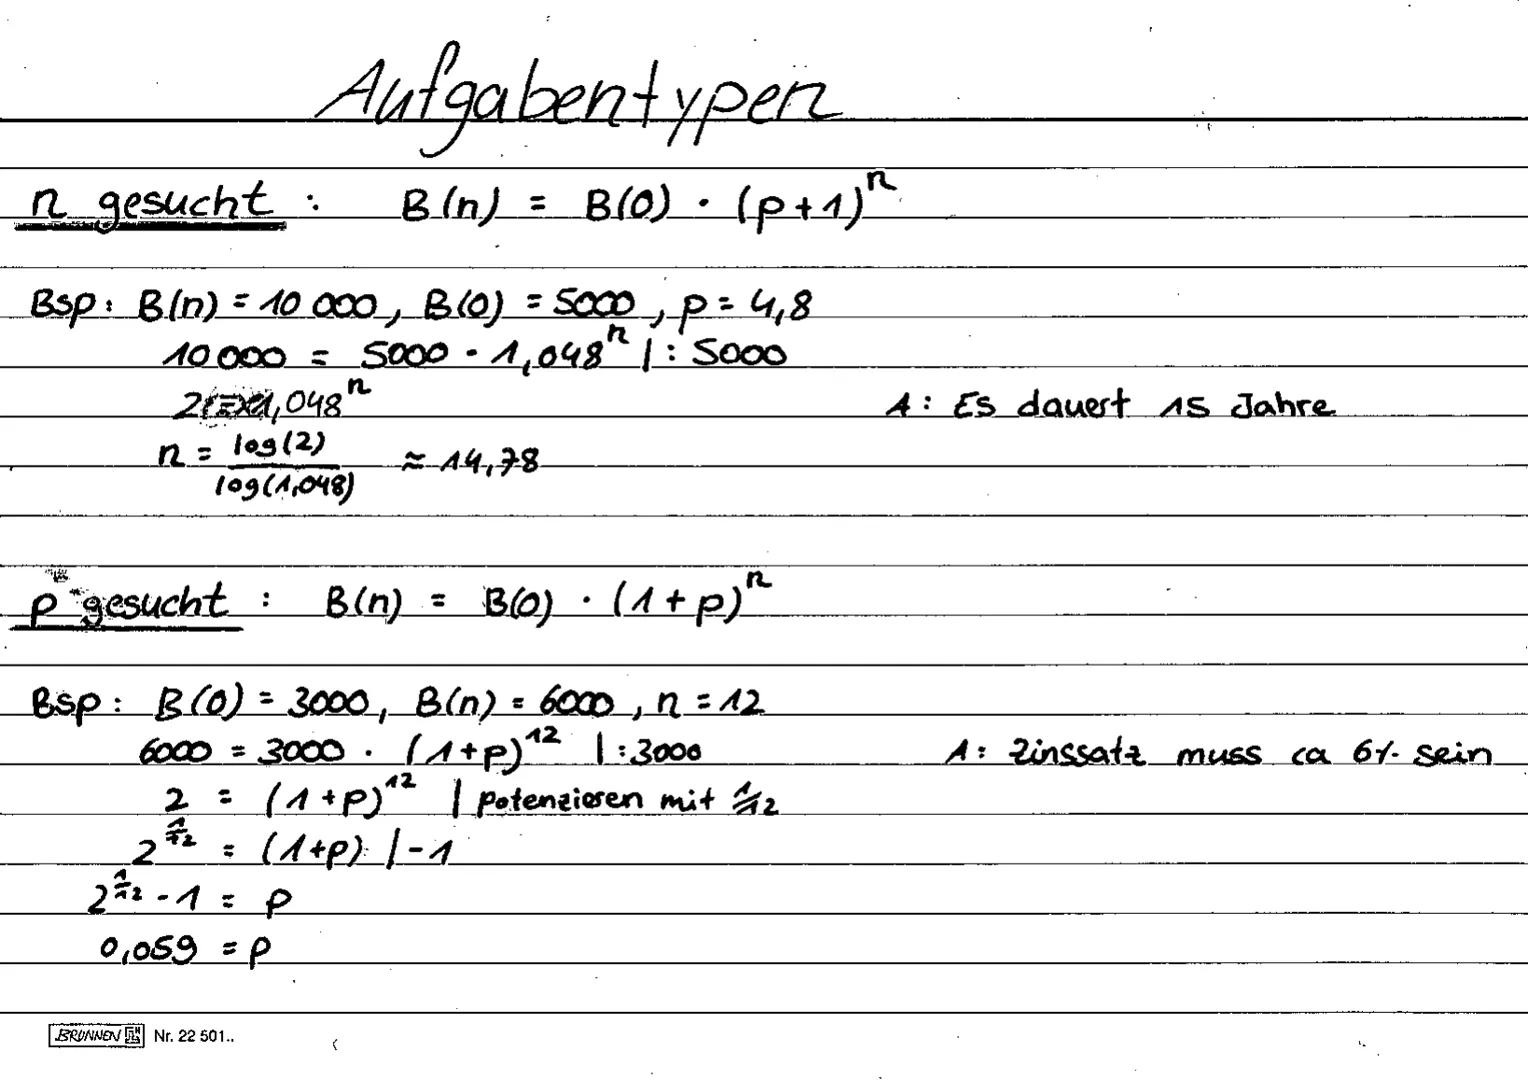 Aufgabentypen
n gesucht : B(n) = B(0) · (p+1)^n
Bsp: B(n) = 10 000, B(0) = 5000, p = 4,8
10 000 = 5000 · 1,048^n | : 5000
2 = 1,048^n A: Es dauert 15 Jahre
n = log(2) / log(1,048) ≈ 14,78
p gesucht : B(n) = B(0) · (1+p)^n
Bsp: B(0) = 3000, B(n) = 6000, n = 12
6000 = 3000 · (1+p)^12 | :3000 A: Zinssatz muss ca 6% sein
2 = (1+p)^12 | potenzieren mit 1/12
2^1/12 = (1+p) | -1
2^1/12 - 1 = p
0,059 = p
BRUNNEN Nr. 22 501..